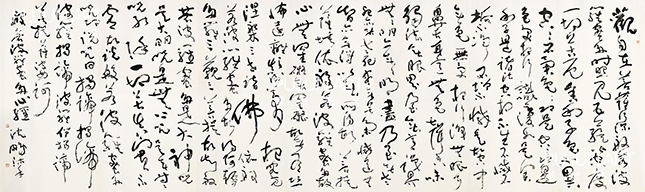 觀自在菩薩行深般若波
羅蜜多時照見五蘊皆空度
一切苦厄舍利子色不異
空空不異色色即是空空即是
色受想行識亦復如是舍
利子是諸法空相不生不滅不
垢不淨不增不減是故空中
無色無受想行識無眼耳
鼻舌身意無色聲香味
觸法無眼界乃至無意識界
無無明亦無無明盡乃至無老
死亦無老死盡無苦集滅道無
智亦無得以無所得故菩提
薩埵依般若波羅蜜多故
心無罣礙無罣礙故無有恐
怖遠離顛倒夢想究竟
涅槃三世諸佛依般
若波羅蜜多故得阿耨
多羅三藐三菩提故知般
若波羅蜜多是大神咒
是大明咒是無上咒是無等等
咒能除一切苦真實不
虛故說般若波羅蜜多
咒即說咒曰揭諦揭諦
波羅揭諦波羅僧揭諦
菩提薩婆訶
般若波羅蜜多心經 沈鵬